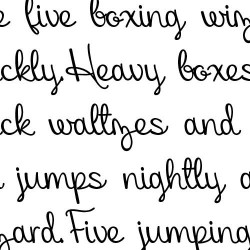 e five boxing wiz
ckly.Heavy boxes
ck waltzes and
jumps nightly a
ard.Five jumping